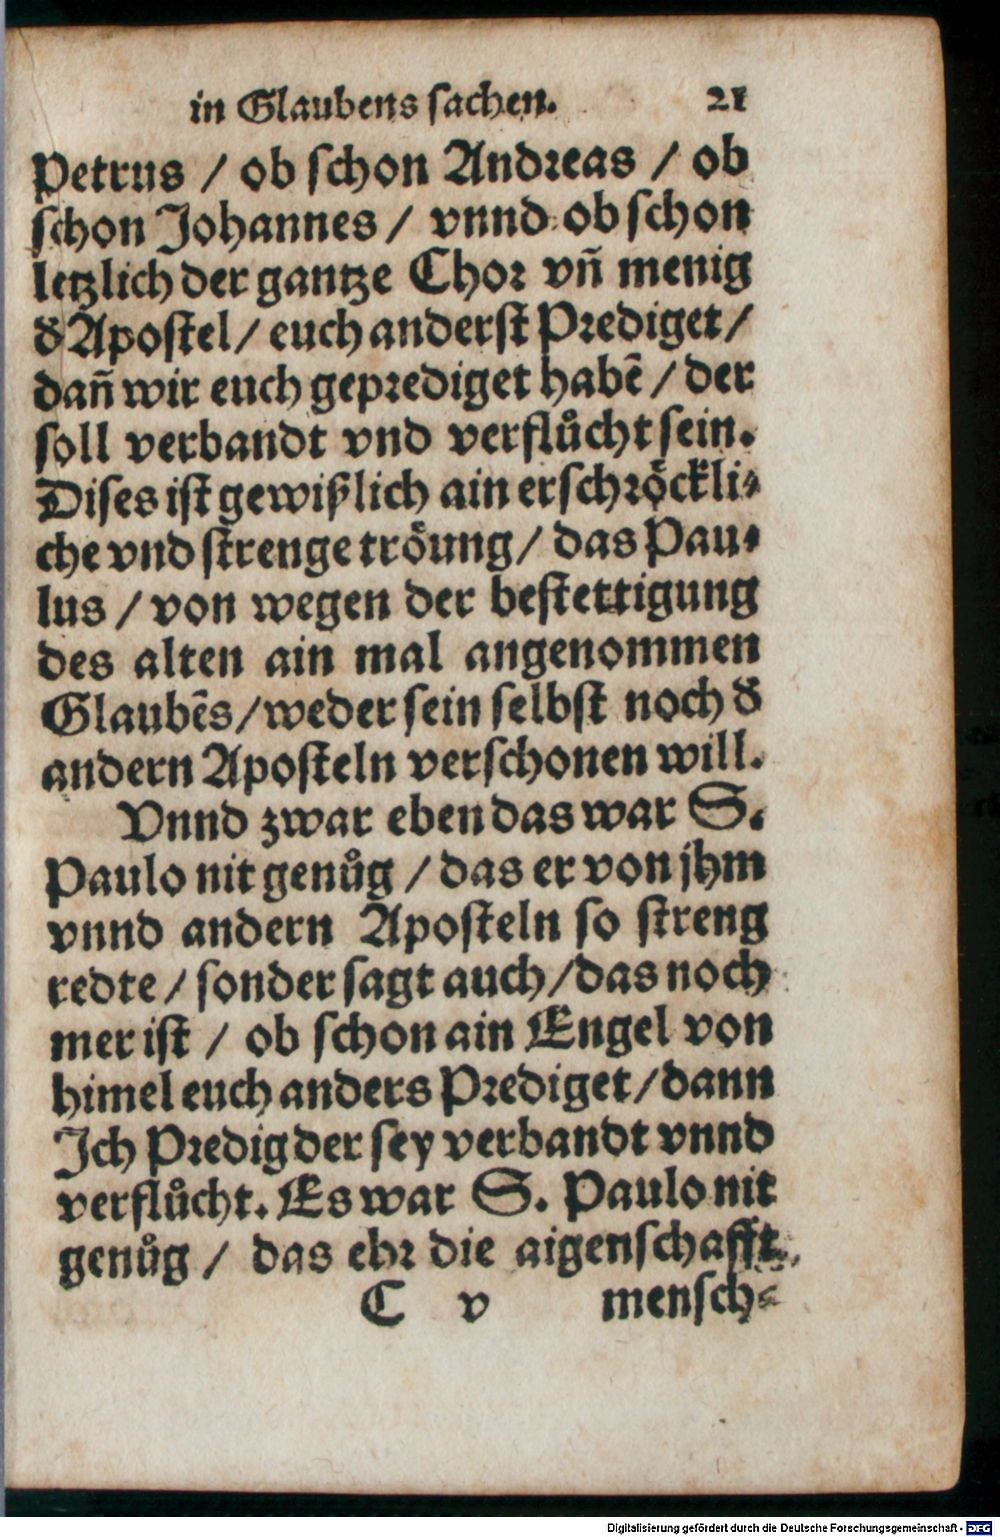 in Glaubens sachen. 21
Petrus / ob schon Andreas / ob
schon Johannes / vnnd ob schon
letzlich der gantze Chor vñ menig
d̕ Apostel / euch anderst Prediget /
dañ wir euch geprediget habẽ / der
soll verbandt vnd verflůcht sein.
Dises ist gewißlich ain erschröckli-
che vnd strenge tröung / das Pau-
lus / von wegen der bestettigung
des alten ain mal angenommen
Glaubẽs / weder sein selbst noch d̕
andern Aposteln verschonen will.
Vnnd zwar eben das war S.
Paulo nit genůg / das er von jhm
vnnd andern Aposteln so streng
redte / sonder sagt auch / das noch
mer ist / ob schon ain Engel von
himel euch anders Prediget / dann
Ich Predig der sey verbandt vnnd
verflůcht. Es war S. Paulo nit
genůg / das ehr die aigenschafft
C v mensch-
Digitalisierung gefördert durch die Deutsche Forschungsgemeinschaft - DFG